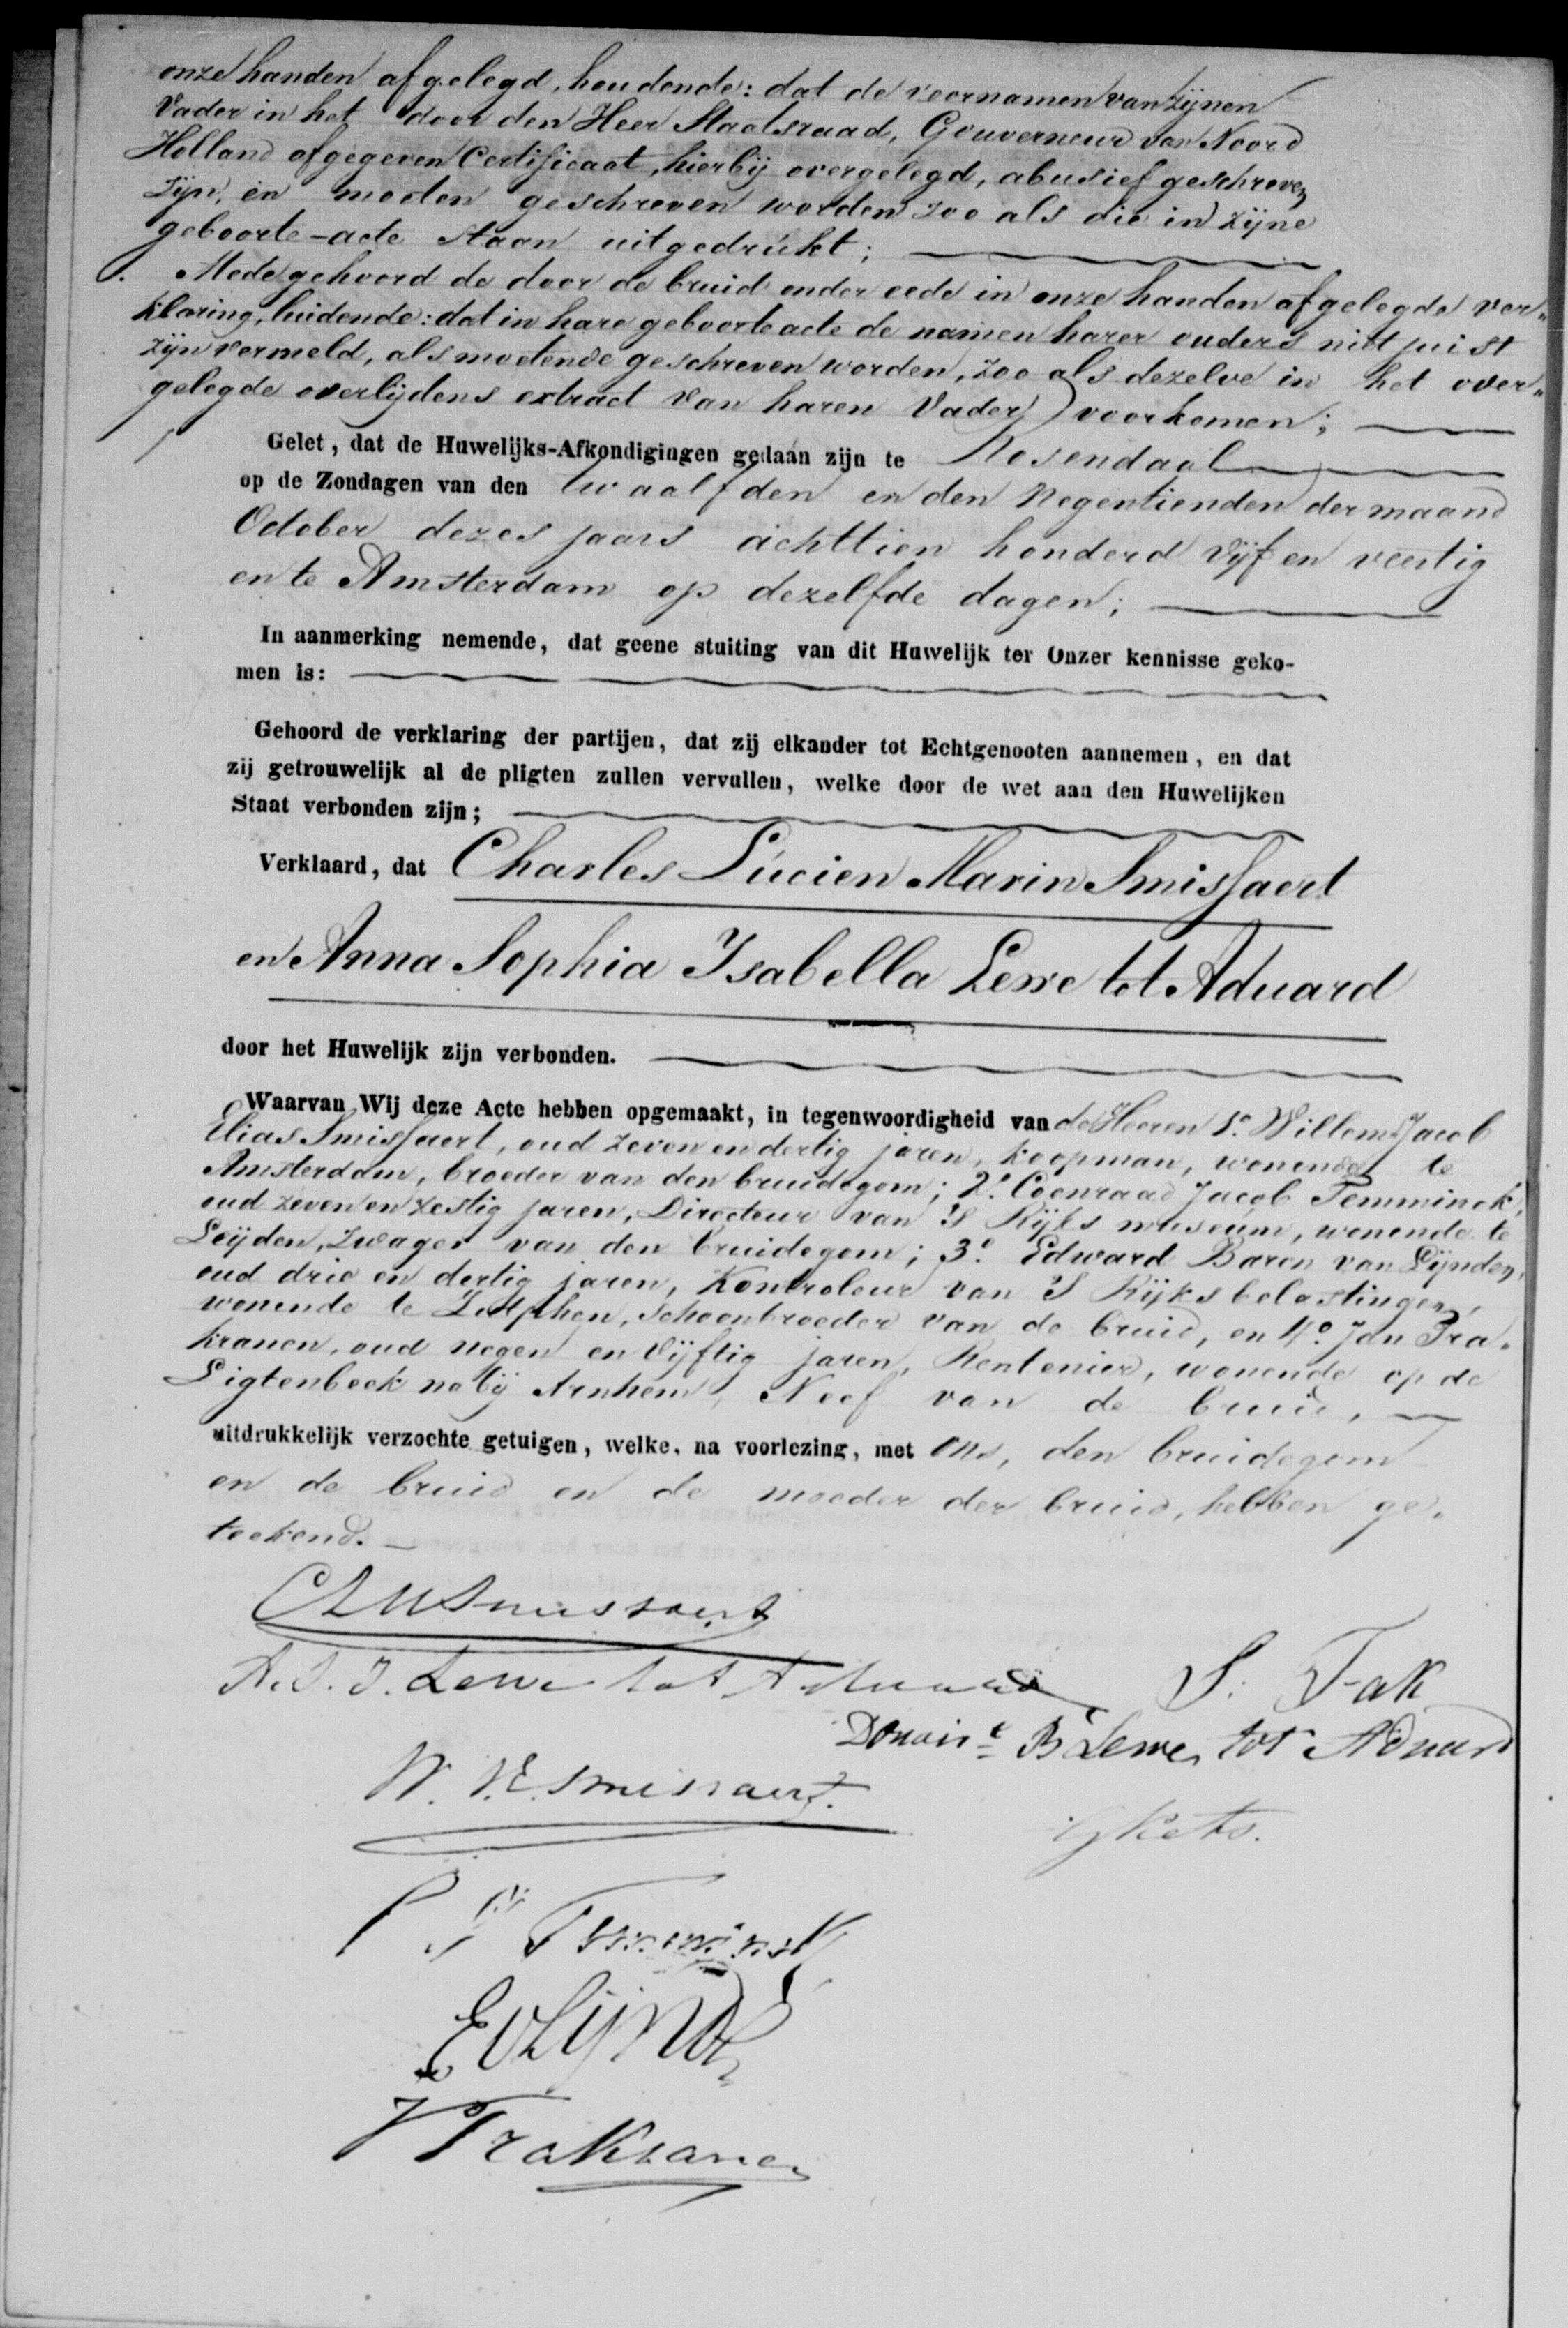 onze handen afgelegd, houdende: dat de voornamen van zijnen
Vader in het door den Heer Staatsraad, Gouverneur van Noord
Holland afgegeven Certificaat, hierbij overgelegd, abusief geschreven
zijn, en moeten geschreven worden zoo als die in zijne
geboorte-acte staan uitgedrukt;
Mede gehoord de door de bruid onder eede in onze handen afgelegde ver"
klaring, luidende: dat in hare geboorteacte de namen harer ouders niet juist
zijn vermeld, als moetende geschreven worden, zoo als dezelve in het over"
gelegde overlijdens extract van haren Vader voorkomen;
Gelet, dat de Huwelijks-Afkondigingen gedaan zijn te Rosendaal
op de Zondagen van den twaalfden en den negentienden der maand
October dezes jaars achttien honderd vijf en veertig
en te Amsterdam op dezelfde dagen;
In aanmerking nemende, dat geene stuiting van dit Huwelijk ter Onzer kennisse geko-
men is:
Gehoord de verklaring der partijen, dat zij elkander tot Echtgenooten aannemen, en dat
zij getrouwelijk al de pligten zullen vervullen, welke door de wet aan den Huwelijken
Staat verbonden zijn;
Verklaard, dat Charles Lucien Marin Smissaert
en Anna Sophia Isabella Lewe tot Aduard
door het Huwelijk zijn verbonden.
Waarvan Wij deze Acte hebben opgemaakt, in tegenwoordigheid van de Heeren 1o. Willem Jacob
Elias Smissaert, oud zeven en dertig jaren, koopman, wonende te
Amsterdam, broeder van den bruidegom; 2o. Coenraad Jacob Temminck,
oud zeven en zestig jaren, Directeur van 's Rijks museum, wonende te
Leijden, zwager van den bruidegom; 3o. Edward Baron van Lijnden,
oud drie en dertig jaren, Kontroleur van 's Rijks belastingen,
wonende te Zutphen, schoonbroeder van de bruid, en 4o. Jan Tra"
kranen, oud negen en vijftig jaren, Rentenier, wonende op de
Ligtenbeek nabij Arnhem, Neef van de bruid,
uitdrukkelijk verzochte getuigen, welke, na voorlezing, met ons, den bruidegom
en de bruid en de moeder der bruid, hebben ge"
teekend.
CLMSmissaert
A. S. I. Lewe tot Aduard
S. Fak
Douair: B Lewe tot Aduard
W. J. E. Smissaert.
C J Temminck
EvLijnden
J Trakranen